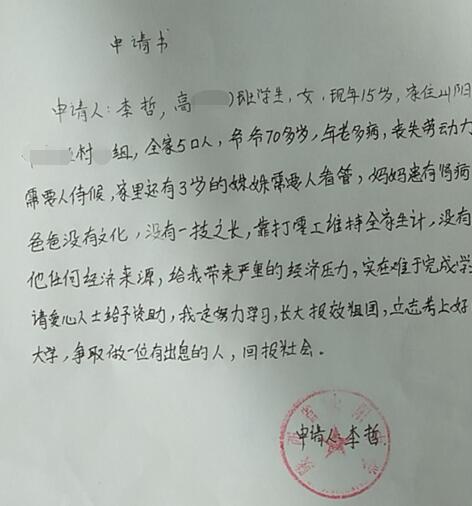 申请书
申请人：李哲，高 )班学生，女，现年15岁，家住山阳
村 组，全家5口人，爷爷70多岁，年老多病，丧失劳动力
需要人侍候，家里还有3岁的妹妹需要人看管，妈妈患有肾病
爸爸没有文化，没有一技之长，靠打零工维持全家生计，没有
他任何经济来源，给我带来严重的经济压力，实在难于完成学
请爱心人士给予资助，我一定努力学习，长大报效祖国，立志考上好
大学，争取做一位有出息的人，回报社会。
申请人：李哲